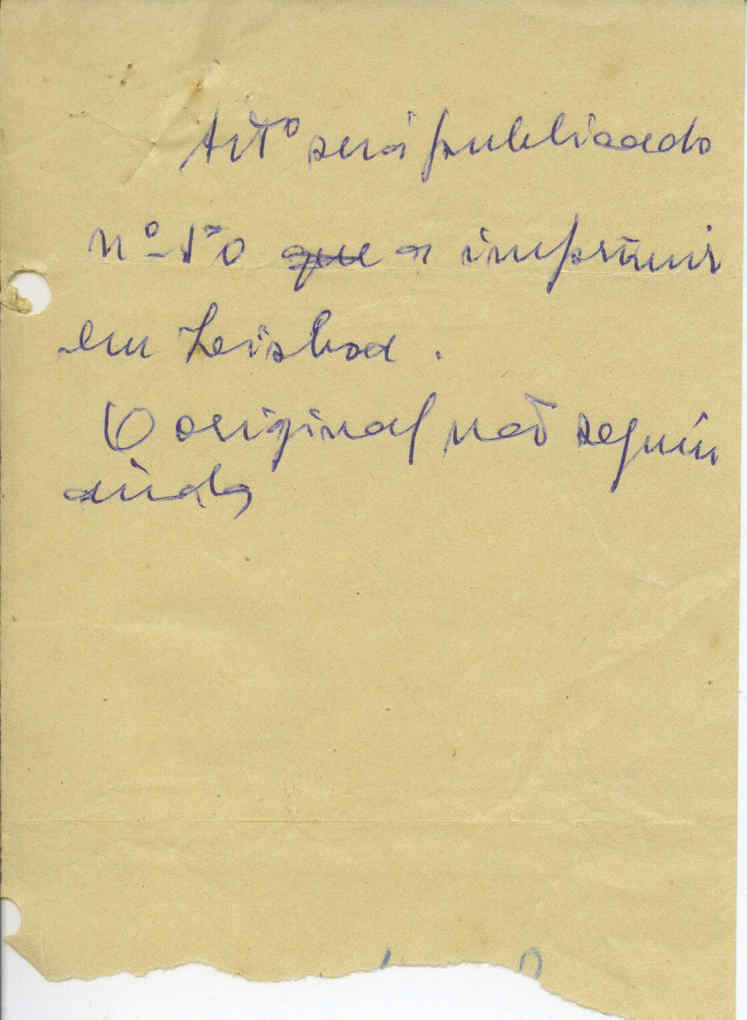 Artº será publicado
nº 1º a imprimir
em Leisboa.
O original não seguiu
ainda